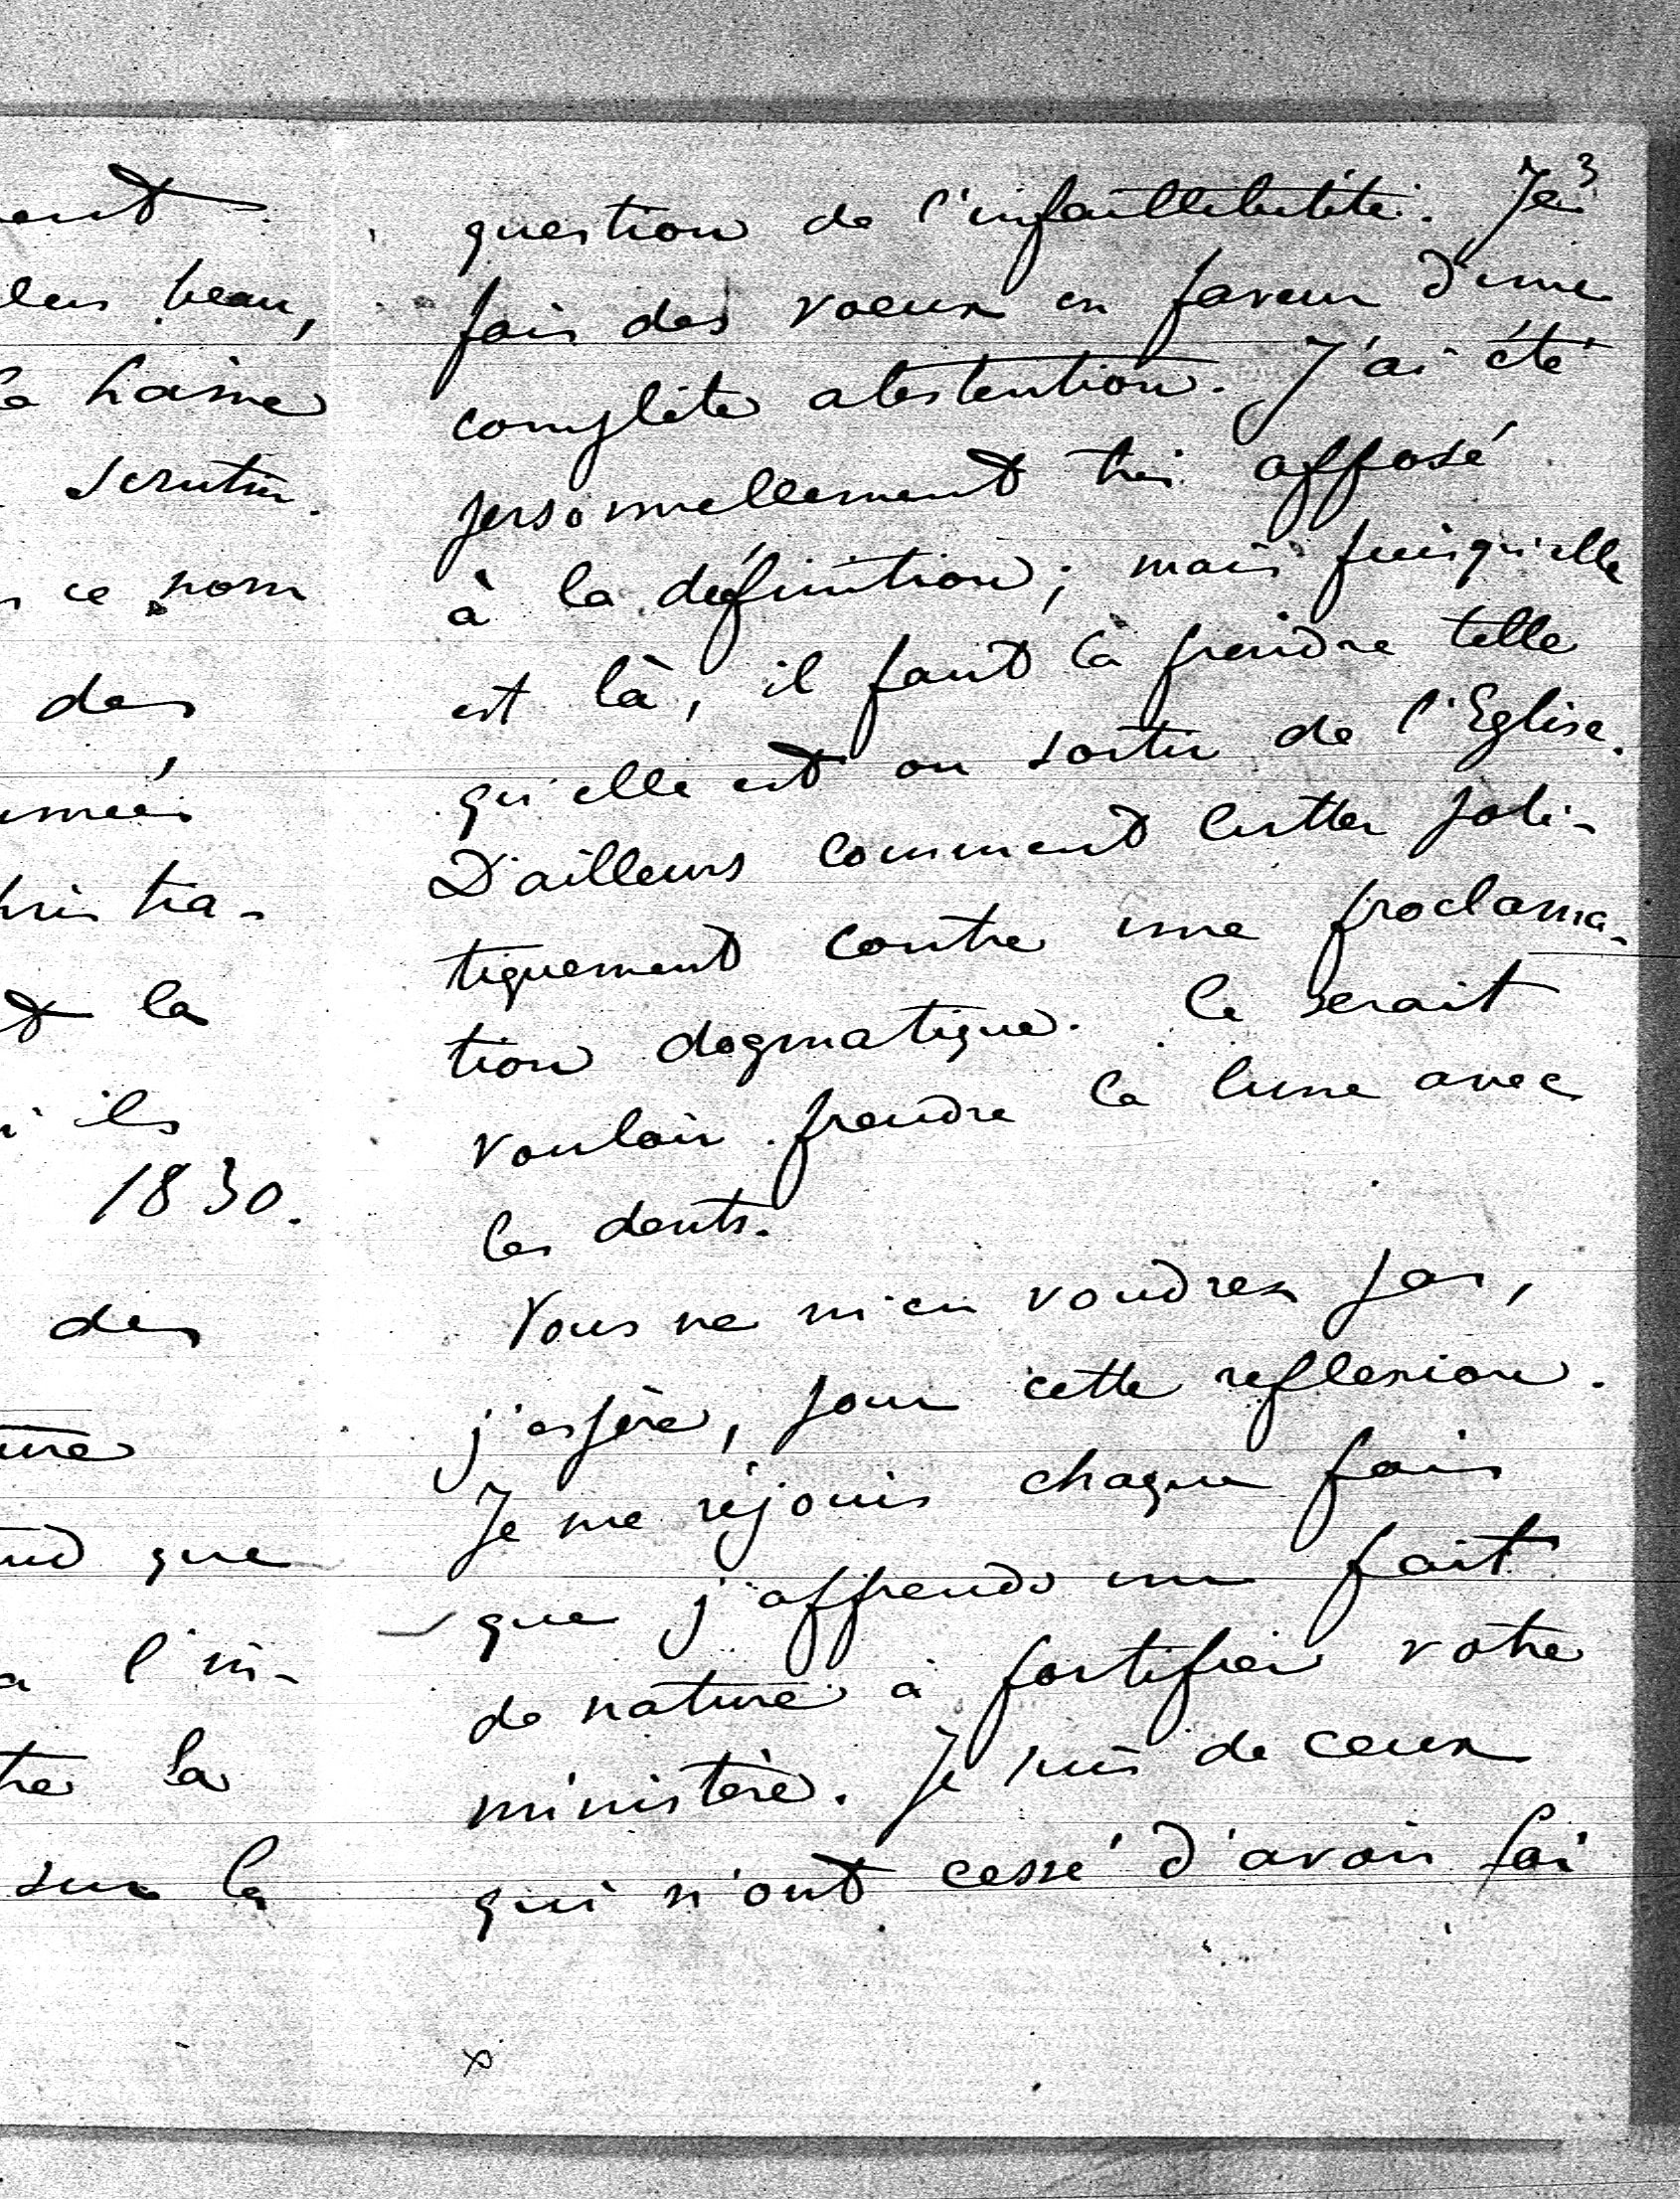 ent
lus beau,
la haine
scrutin.
ce nom
des
umées
tra-
t la
ils
1830.
des
ure
que
a l'in-
tre la
sur la
3
question de l'infaillibilité. Je
fais des voeux en faveur d'une
complète abstention. J'ai été
personnellement très opposé
à la définition; mais puisqu'elle
est là, il faut la prendre telle
qu'elle est ou sortir de l'Eglise.
D'ailleurs comment lutter poli-
tiquement contre une proclama-
tion dogmatique. Ce serait
vouloir prendre la lune avec
les dents.
Vous ne m'en voudrez pas,
j'espère, pour cette reflexion.
Je me réjouis chaque fois
que j'apprends un fait
de nature à fortifier votre
ministère. Je suis de ceux
qui n'ont cessé d'avoir foi